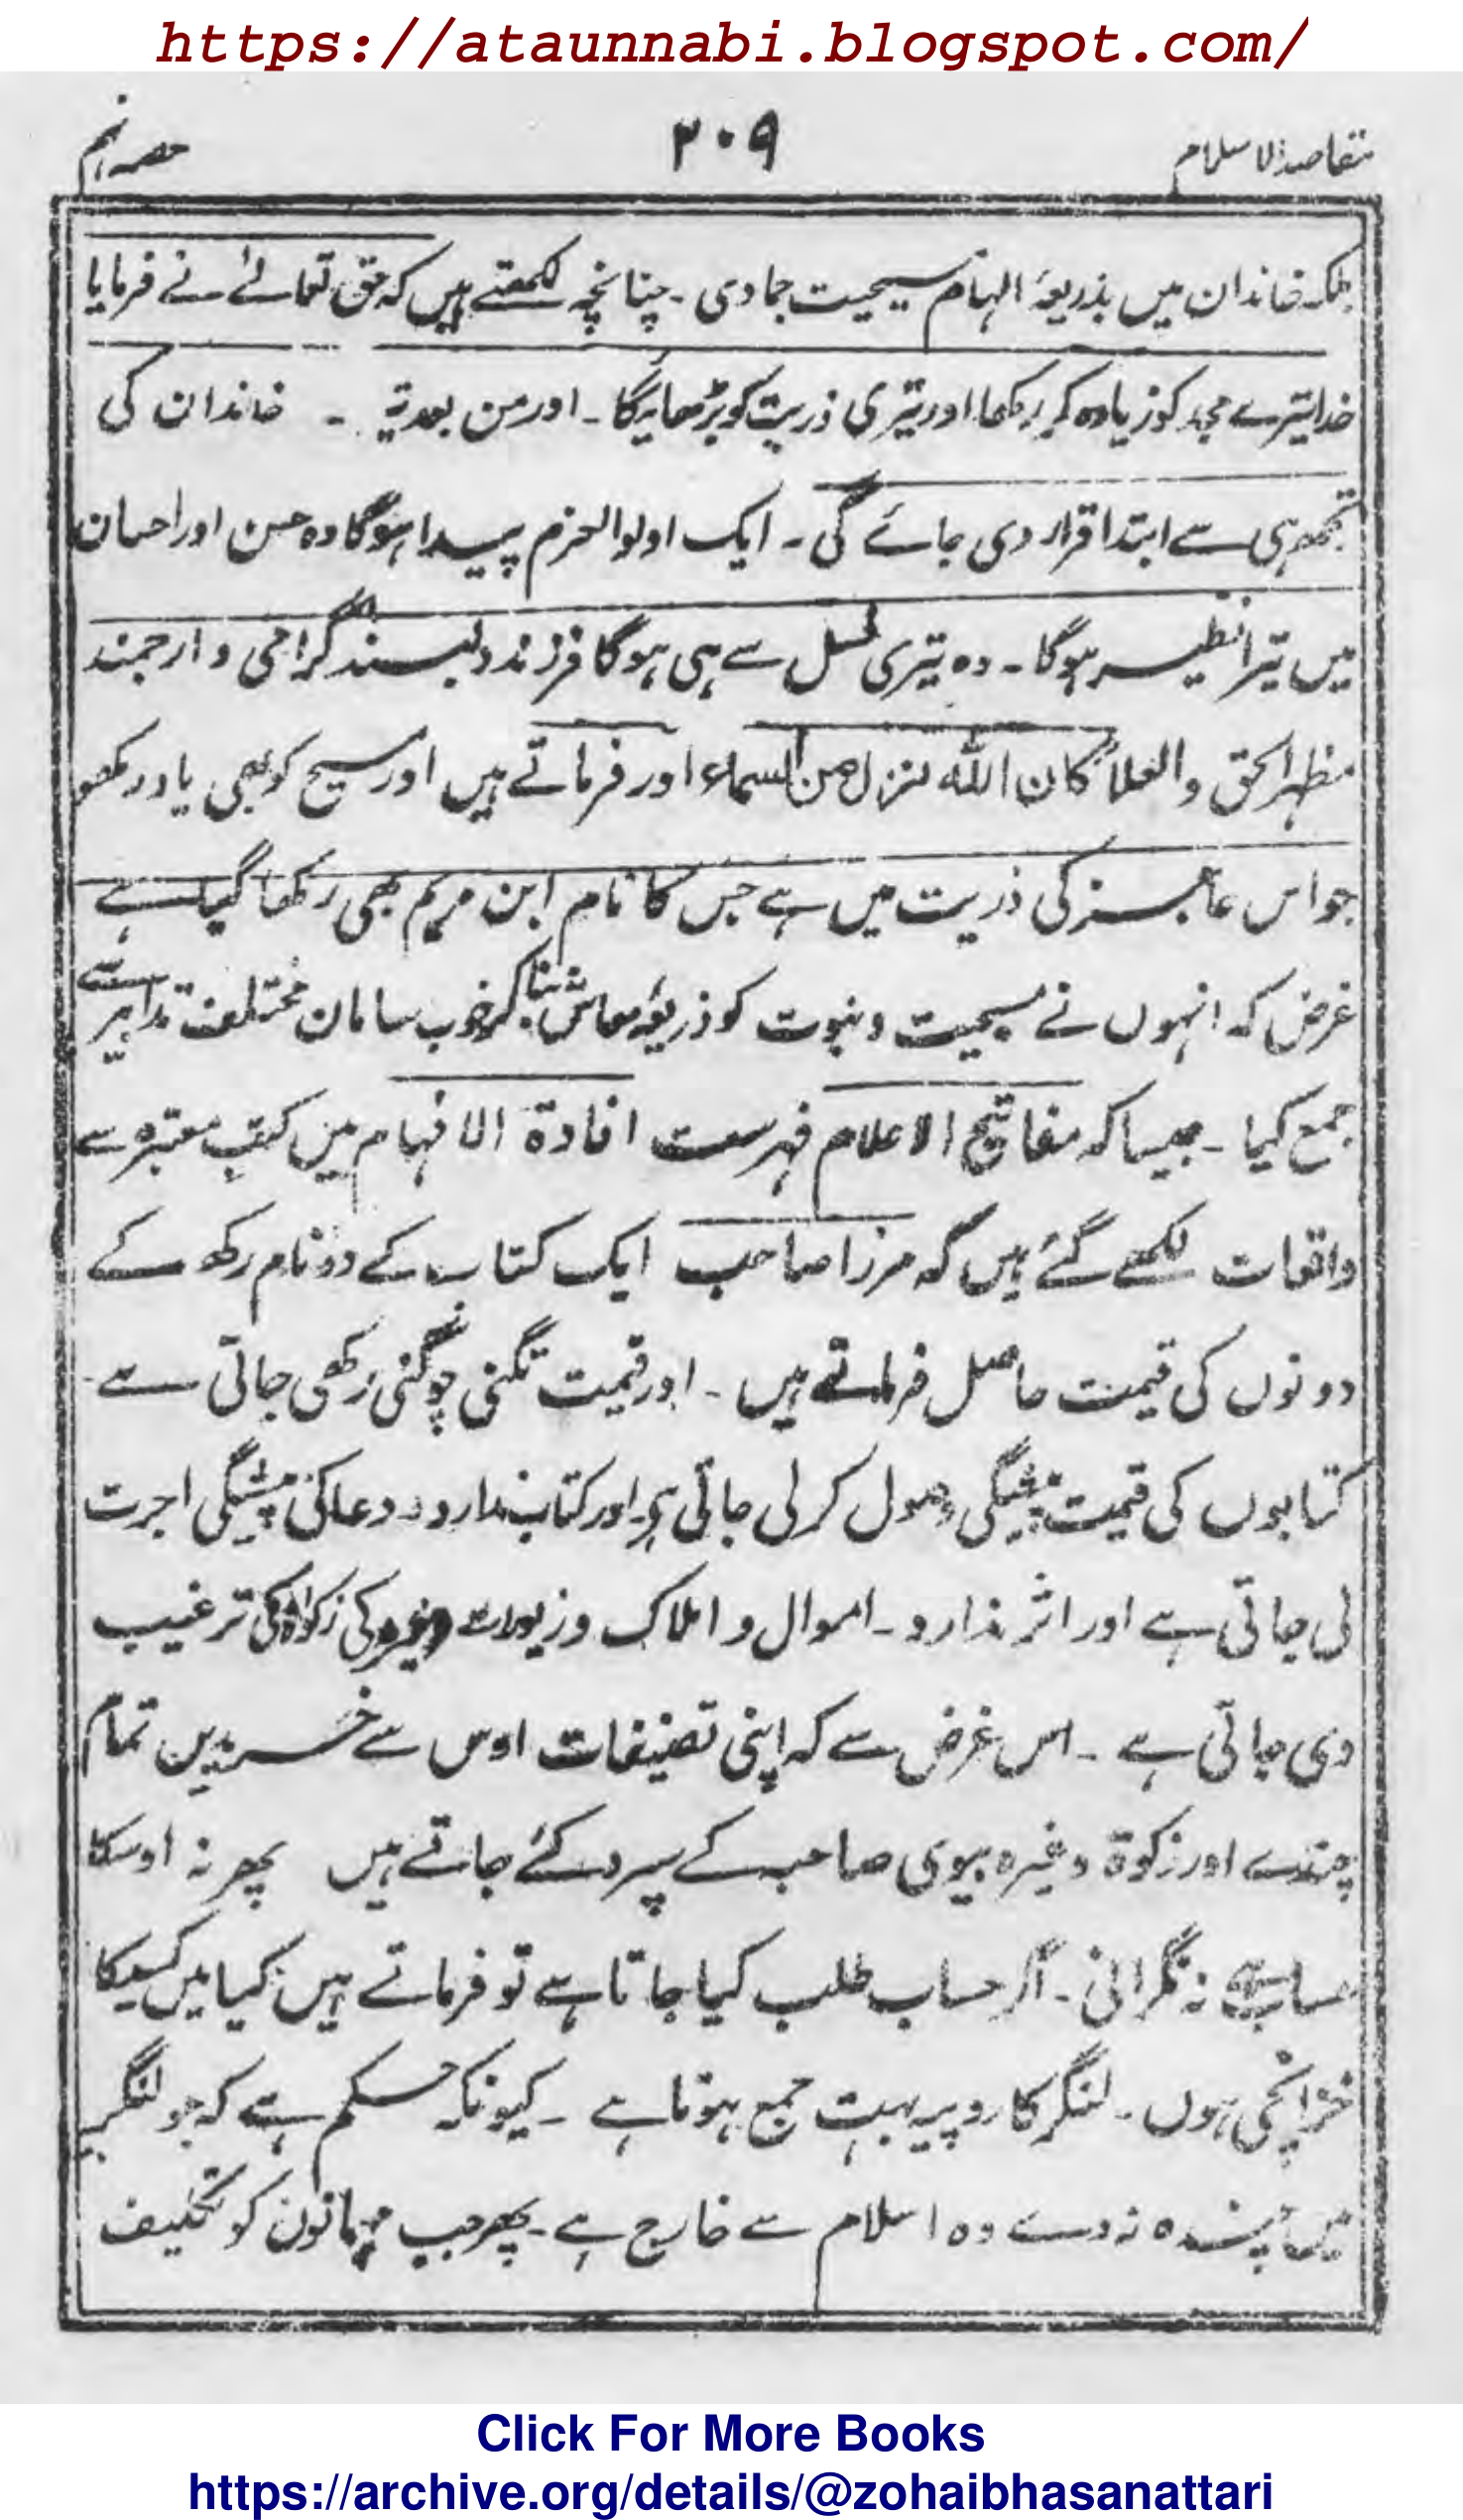 https://ataunnabi.blogspot.com/
مقاصدالاسلام
۲۰۹
حصہ نہم
بلکہ خاندان میں بذریعۂ الہام مسیحیت جمادی ۔ چنانچہ لکھتے ہیں کہ حق تعالےٰ نے فرمایا
خدا تیرے مجد کو زیادہ کریگا اور تیری ذریت کو بڑھائیگا ۔ اور من بعد تیرے ۔ خاندان کی
تجھہی سے ابتدا قرار دی جائے گی ۔ ایک اولوالعزم پیدا ہوگا وہ حسن اور احسان
میں تیرا نظیر ہوگا ۔ وہ تیری نسل سے ہی ہوگا فرزند دلبند گرامی و ارجمند
مظہر الحق والعلا کان اللہ نزل من السماء اور فرماتے ہیں اور مسیح کو بھی یاد رکھو
جو اس عاجز کی ذریت میں ہے جس کا نام ابن مریم بھی رکھا گیا ہے
غرض کہ انہوں نے مسیحیت و نبوت کو ذریعۂ معاش بنا کر خوب سامان مختلف تدابیر سے
جمع کیا ۔ جیسا کہ مفاتیح الاعلام فہرست افادۃ الافہام میں کتب معتبرہ سے
واقعات لکھے گئے ہیں کہ مرزا صاحب ایک کتاب کے دو نام رکھ کے
دونوں کی قیمت حاصل فرماتے ہیں ۔ اور قیمت تگنی چوگنی رکھی جاتی ہے ۔
کتابوں کی قیمت پیشگی وصول کرلی جاتی ہے اور کتاب ندارد ۔ دعا کی پیشگی اجرت
لی جاتی ہے اور اثر ندارد ۔ اموال و املاک و زیورات وغیرہ کی زکوٰۃ کی ترغیب
دی جاتی ہے ۔ اس غرض سے کہ اپنی تصنیفات اوس سے خریدیں تمام
چندے اور زکوۃ وغیرہ بیوی صاحبہ کے سپرد کئے جاتے ہیں پھر نہ اوسکا
حساب ہے نہ نگرانی ۔ اگر حساب طلب کیا جاتا ہے تو فرماتے ہیں کیا میں کسیکا
خزانچی ہوں ۔ لنگر کا روپیہ بہت جمع ہوتا ہے ۔ کیونکہ حکم ہے کہ جو لنگر
میں چندہ نہ دے وہ اسلام سے خارج ہے ۔ پھر جب مہمانوں کو تکلیف
Click For More Books
https://archive.org/details/@zohaibhasanattari